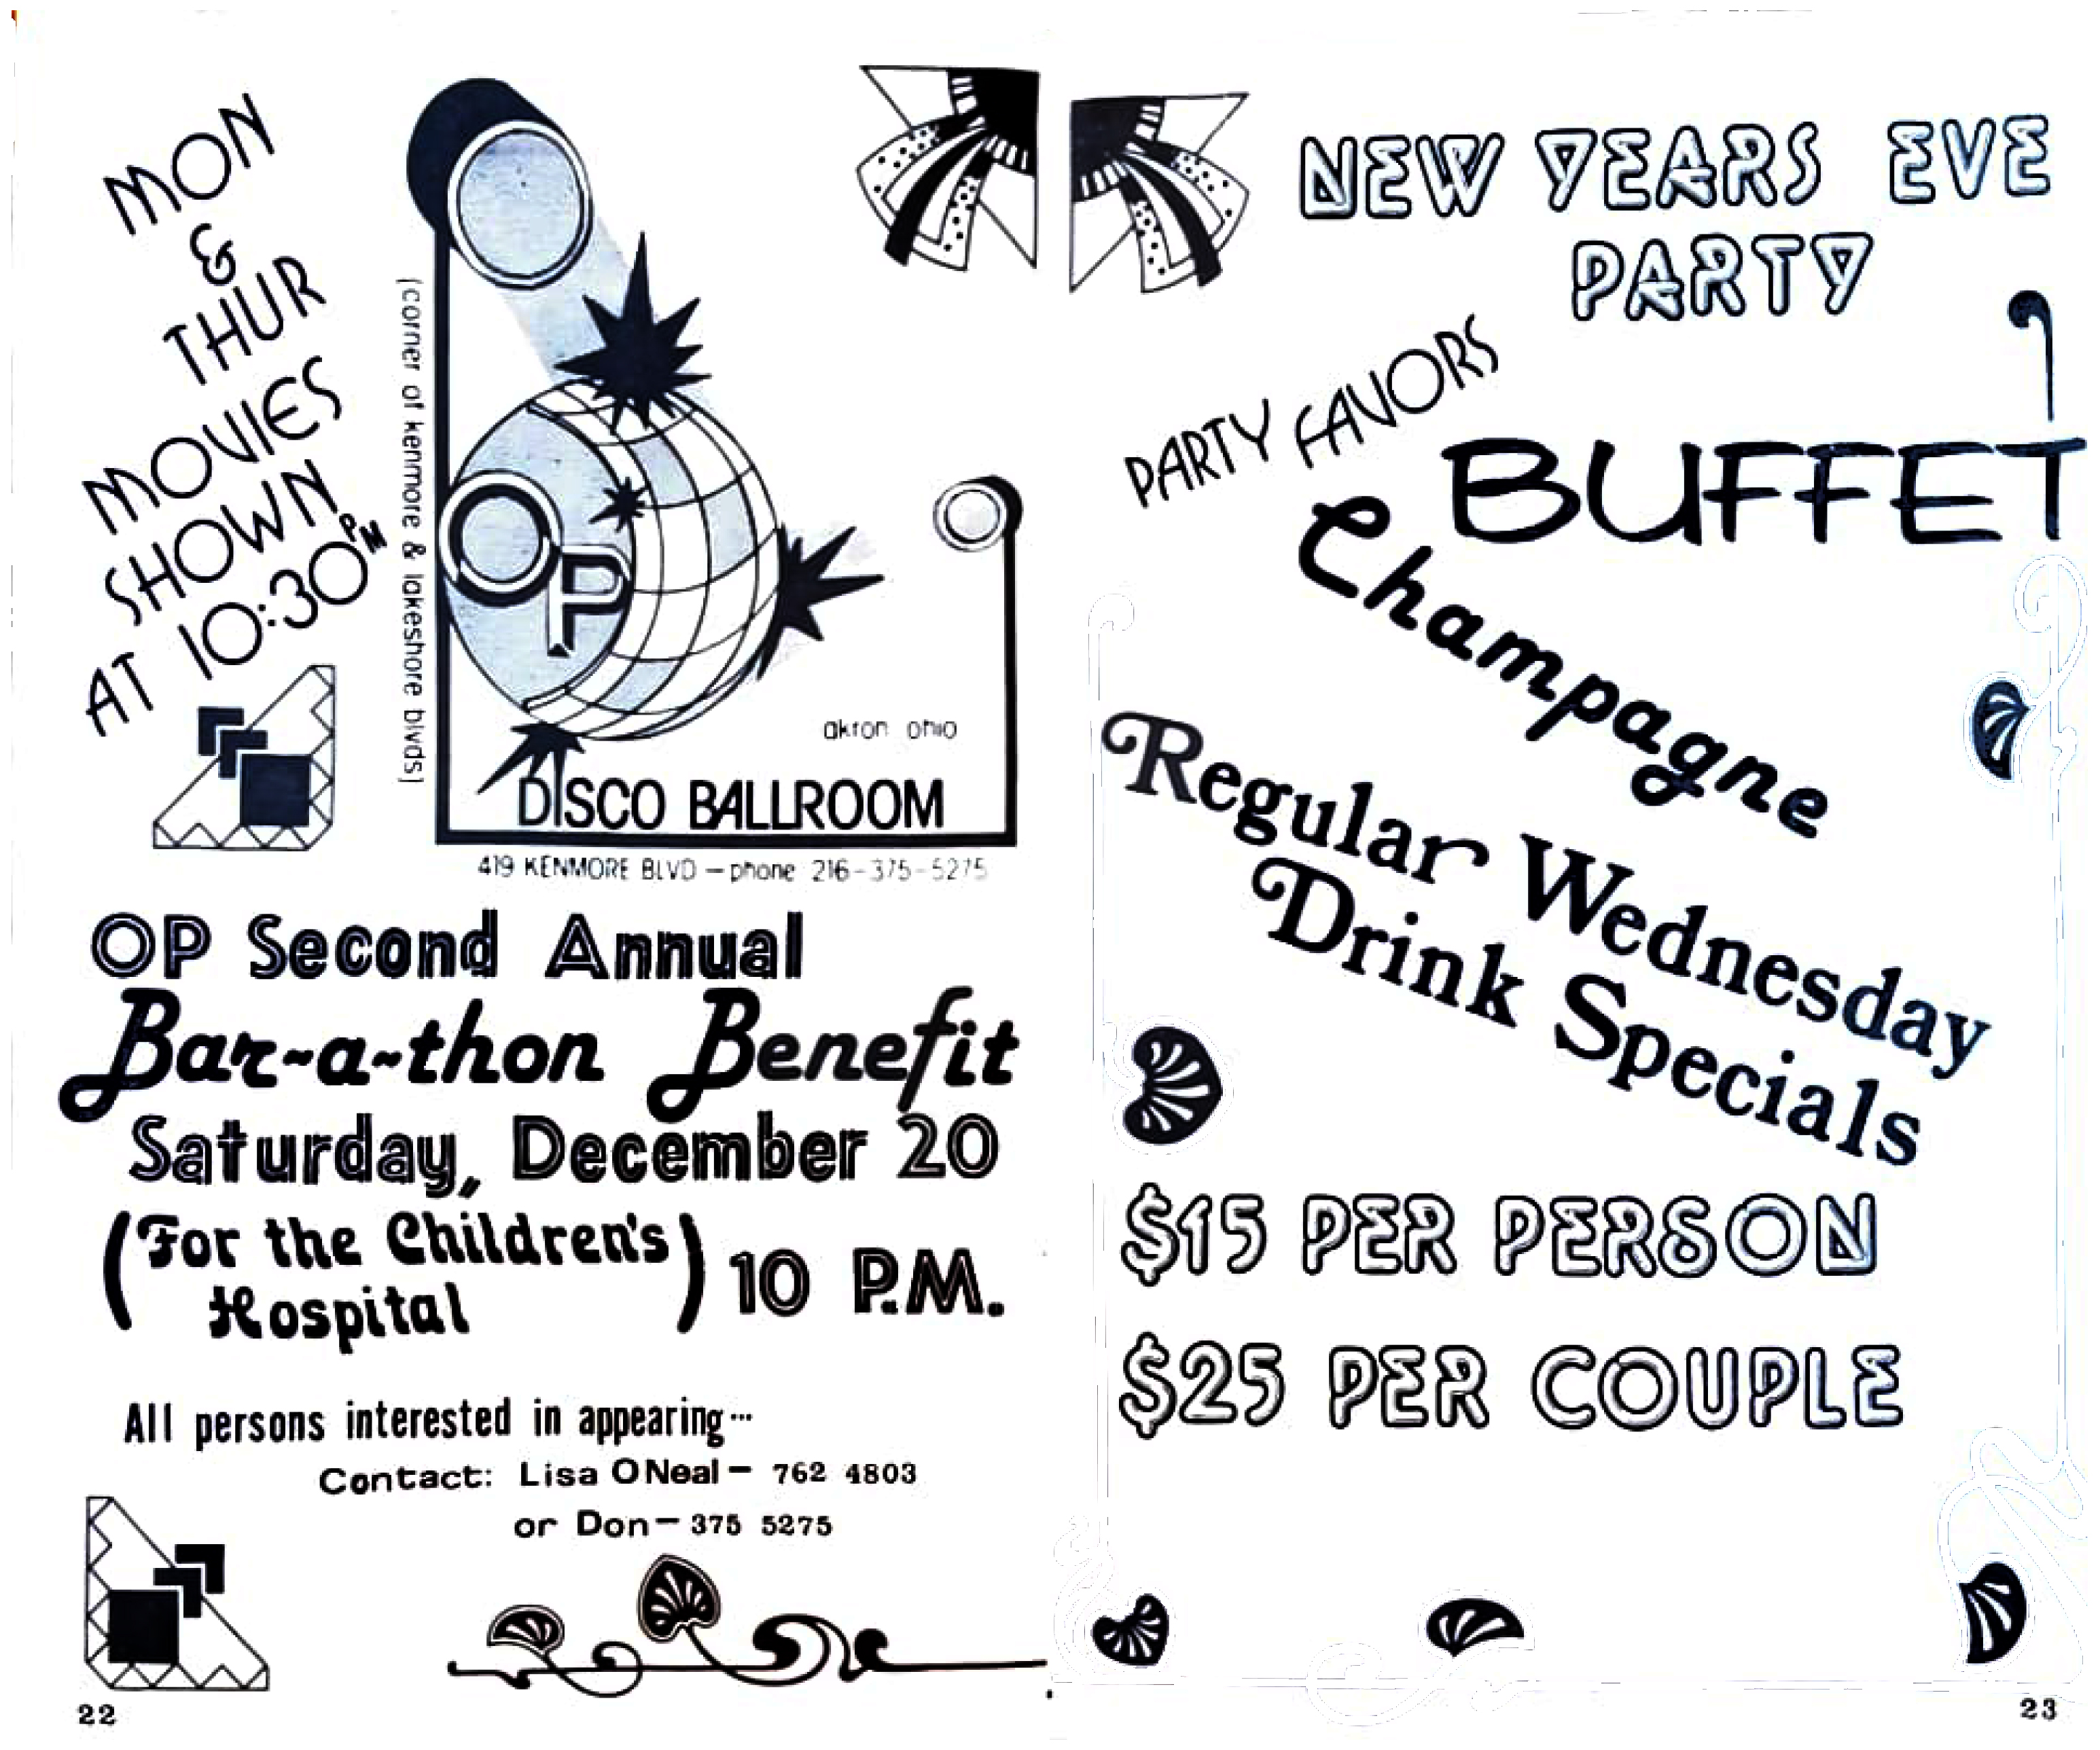 MON
&
THUR
MOVIES
SHOWN
AT 10:30 PM
(corner of kenmore & lakeshore blvds)
OP
akron ohio
DISCO BALLROOM
419 KENMORE BLVD — phone 216-375-5275
OP Second Annual
Bar-a-thon Benefit
Saturday, December 20
(For the Children's
Hospital) 10 P.M.
All persons interested in appearing...
Contact: Lisa ONeal - 762 4803
or Don - 375 5275
22
NEW YEARS EVE
PARTY
PARTY FAVORS
BUFFET
Champagne
Regular Wednesday
Drink Specials
$15 PER PERSON
$25 PER COUPLE
23